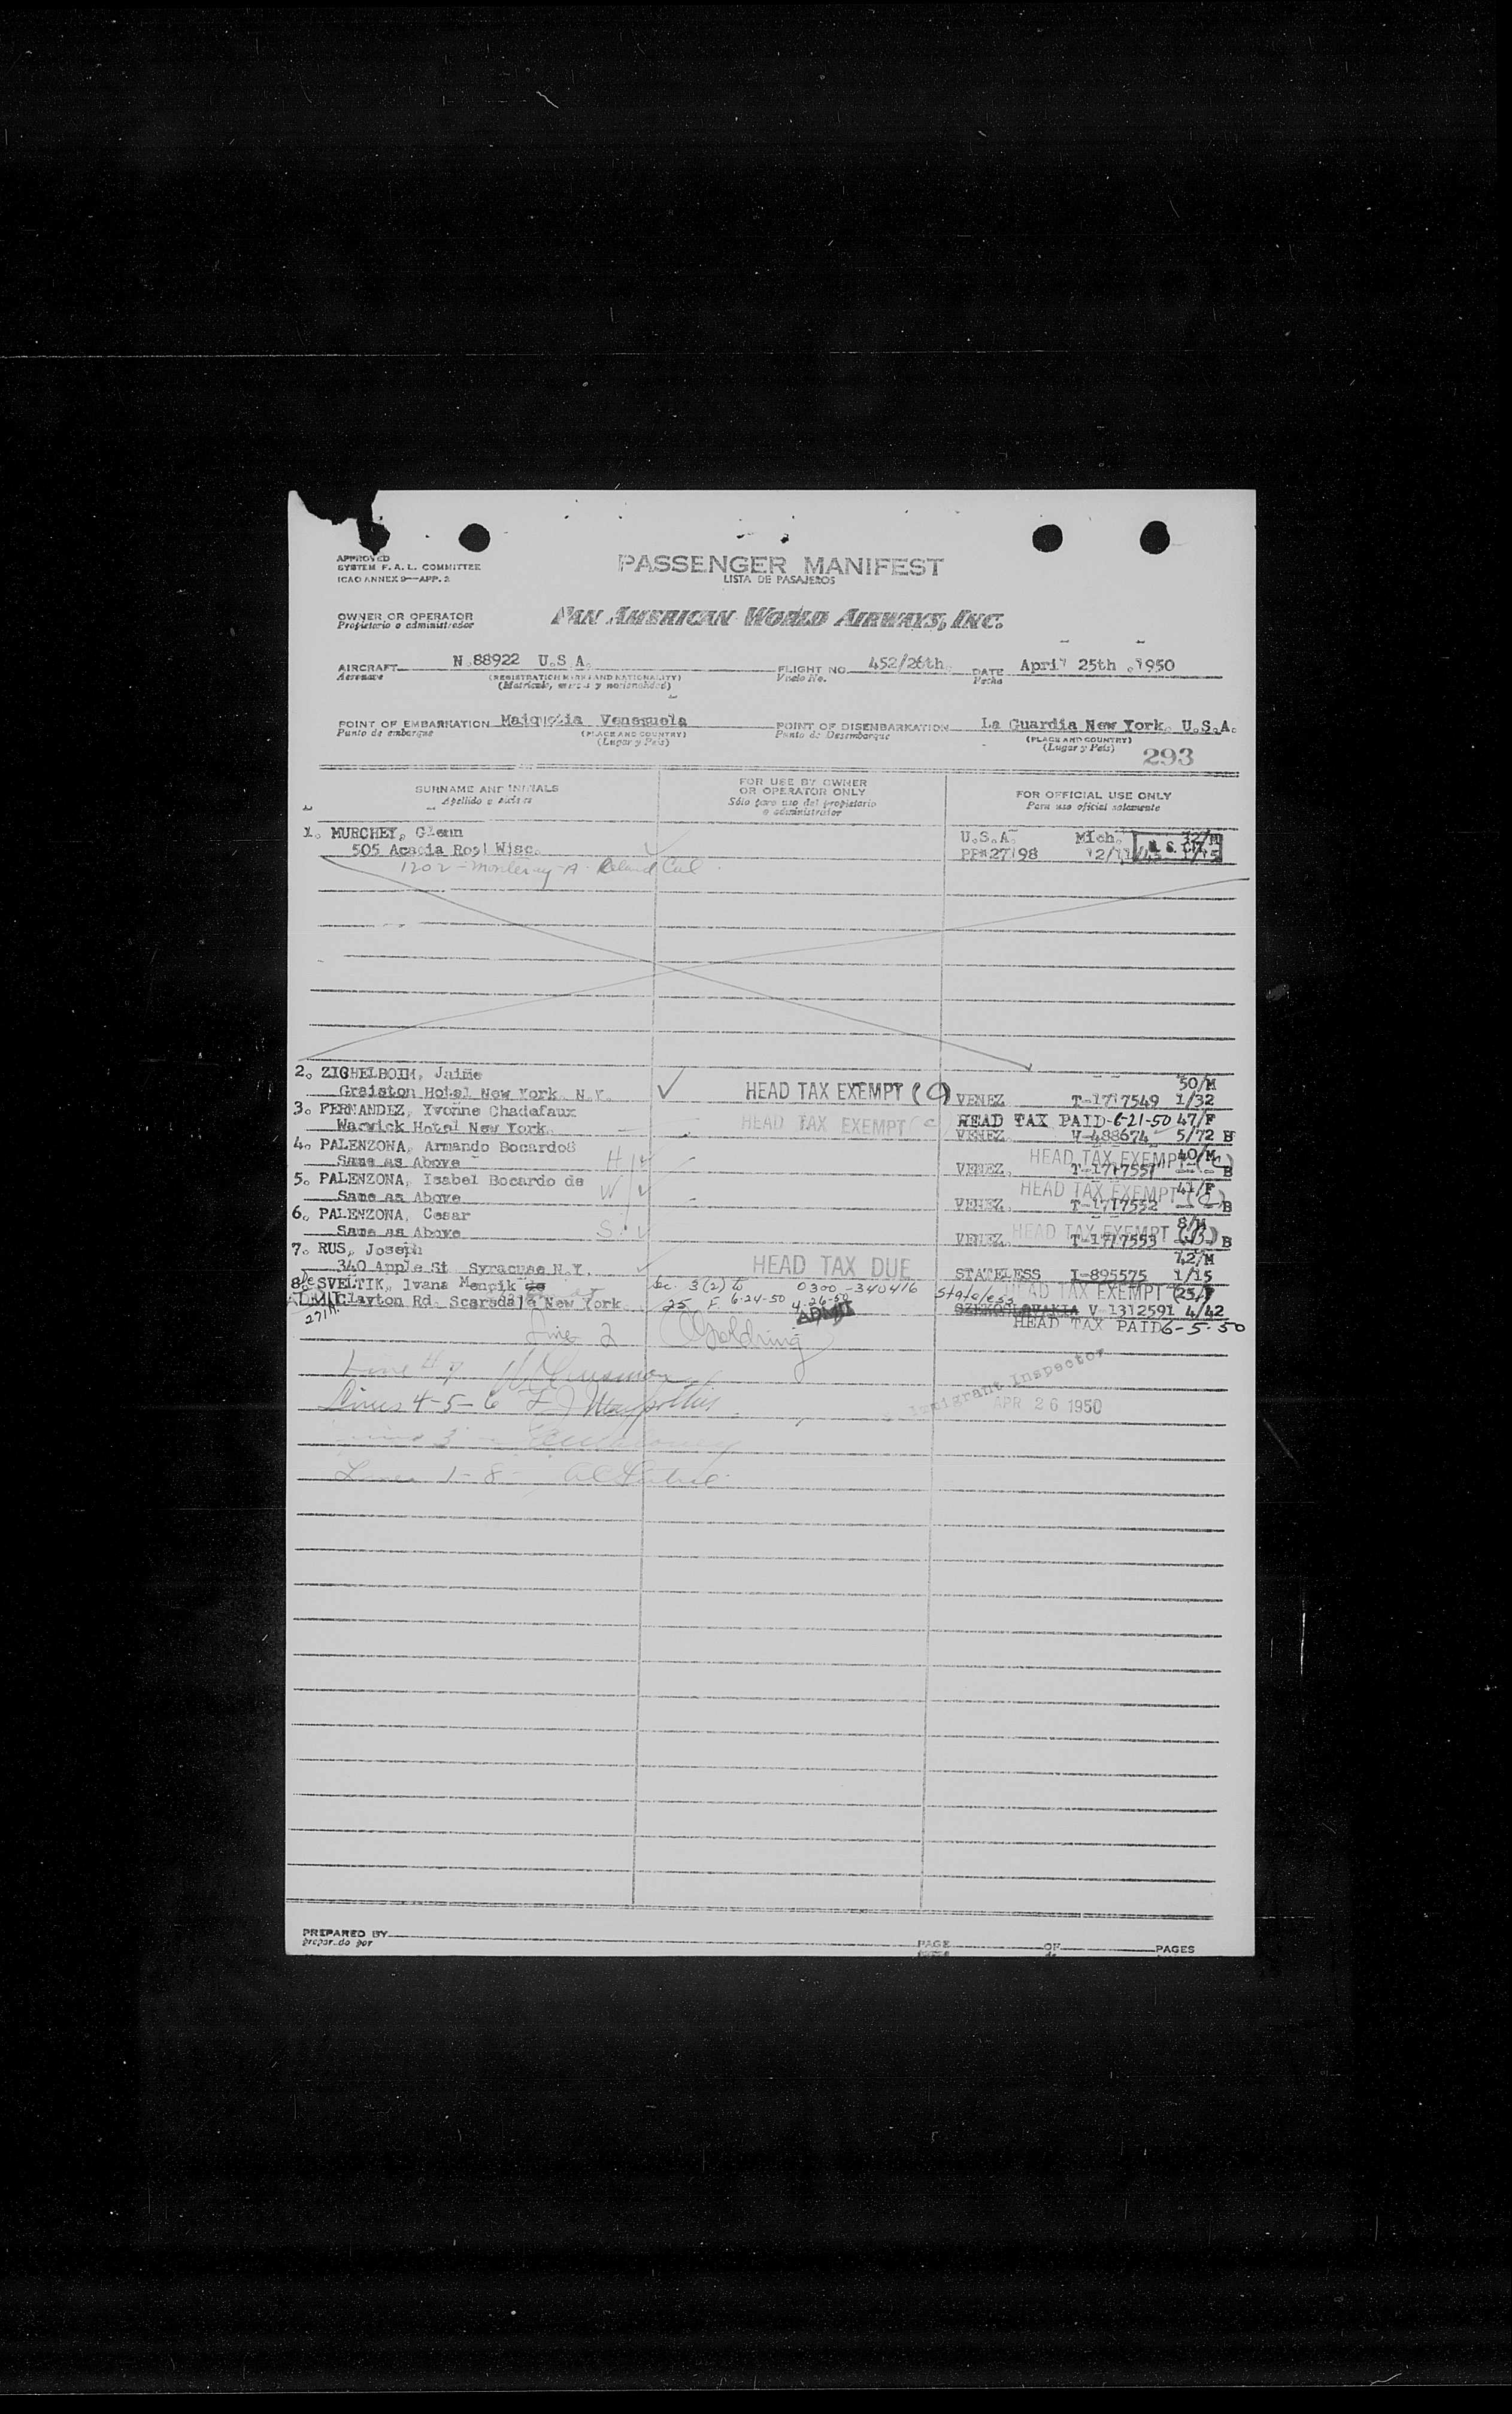 APPROVED
SYSTEM F. A. L. COMMITTEE
ICAO ANNEX 9—APP. 2
PASSENGER MANIFEST
LISTA DE PASAJEROS
OWNER OR OPERATOR
Propietario o administrador
PAN AMERICAN WORLD AIRWAYS, INC.
AIRCRAFT N 88922 U.S.A. FLIGHT NO. 452/26th DATE April 25th 1950
Aeronave (REGISTRATION MARKS AND NATIONALITY) Vuelo No. Fecha
(Matrícula, marcas y nacionalidad)
POINT OF EMBARKATION Maiquetia Venezuela POINT OF DISEMBARKATION La Guardia New York, U.S.A.
Punto de embarque (PLACE AND COUNTRY) Punto de Desembarque (PLACE AND COUNTRY)
(Lugar y País) (Lugar y País) 293
SURNAME AND INITIALS FOR USE BY OWNER OR OPERATOR ONLY FOR OFFICIAL USE ONLY
Apellido e Sólo para uso del propietario o administrador Para uso oficial solamente
1. MURCHEY, Glenn U.S.A. Mich. 32/M
505 Acacia Wisc. PP#27198 U. S. CIT. 1/15
1202 Cal
2. ZIGHELBOIM, Jaime 50/M
Hotel New York N.Y. HEAD TAX EXEMPT (C) VENEZ T-1717549 1/32
3. FERNANDEZ, Yvonne Chadefaux HEAD TAX PAID 6-21-50 47/F
Warwick Hotel New York HEAD TAX EXEMPT (C) VENEZ. V-488674 5/72 B
4. PALENZONA, Armando Bocardo8 HEAD TAX EXEMPT 40/M
Same as Above H VENEZ. T-1717551 B
5. PALENZONA, Isabel Bocardo de HEAD TAX EXEMPT 41/F
Same as Above W VENEZ. T-1717552 B
6. PALENZONA, Cesar HEAD TAX EXEMPT 8/M
Same as Above S VENEZ. T-1717553 B
7. RUS, Joseph HEAD TAX DUE 42/M
340 Apple St Syracuse N.Y. STATELESS I-895575 1/15
8. SVELTIK, Ivana Menpik de Sec 3(2) to 0300-340416 Stateless HEAD TAX EXEMPT 25/F
ADMIT Clayton Rd. Scarsdale New York 25 F 6-24-50 4-26-50 V 1312591 4/42
ADMIT HEAD TAX PAID 6-5-50
Line 2 Goldring
Line # 7
Lines 4-5-6
Immigrant Inspector
APR 26 1950
Line 3
Lines 1-8
PREPARED BY
preparado por
PAGE OF PAGES
de